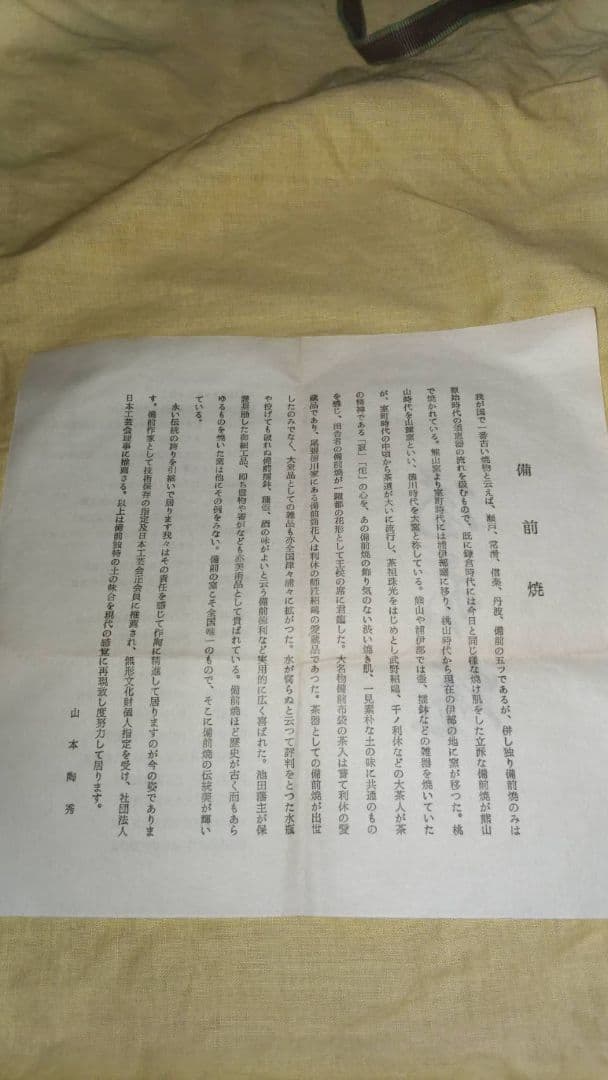 備前焼
我が国で一番古い焼物と云えば、瀬戸、常滑、信楽、丹波、備前の五ツであるが、併し独り備前焼のみは
原始時代の須恵器の流れを汲むもので、既に鎌倉時代には今日と同じ様な焼け肌をした立派な備前焼が熊山
で焼かれている。熊山窯より室町時代には浦伊部窯に移り、桃山時代から現在の伊部の地に窯が移つた。桃
山時代を山麓窯といい、徳川時代を大窯と称している。熊山や浦伊部では壺、擂鉢などの雑器を焼いていた
が、室町時代の中頃から茶道が大いに流行し、茶祖珠光をはじめとし武野紹鴎、千ノ利休などの大茶人が茶
の精神である「寂」「佗」の心を、あの備前焼の飾り気のない渋い焼き肌、一見素朴な土の味に共通のもの
を感じ、田舎者の備前焼が一躍都の花形として王侯の席に君臨した。大名物備前布袋の茶入は嘗て利休の愛
蔵品であり、尾張徳川家にある備前筒花入は利休の師匠紹鴎の愛蔵品であつた。茶器としての備前焼が出世
したのみでなく、大衆品としての雑品も亦全国津々浦々に拡がつた。水が腐らぬと云つて評判をとつた水瓶
や投げても破れぬ備前擂鉢、種壺、酒の味がよいと云う備前徳利など実用的に広く喜ばれた。池田藩主が保
護奨励した御細工品、即ち置物や香炉なども亦美術品として貴ばれている。備前焼ほど歴史が古く而もあら
ゆるものを焼いた窯は他にその例をみない。備前の窯こそ全国唯一のもので、そこに備前焼の伝統美が輝い
ている。
永い伝統の誇りを引継いで居ります我々はその責任を感じて作陶に精進して居りますのが今の姿でありま
す。備前作家として技術保存の指定及日本工芸会正会員に推薦され、無形文化財個人指定を受け、社団法人
日本工芸会理事に推薦さる。以上は備前独特の土の味合を現代の感覚に再現致し度努力して居ります。
山本陶秀